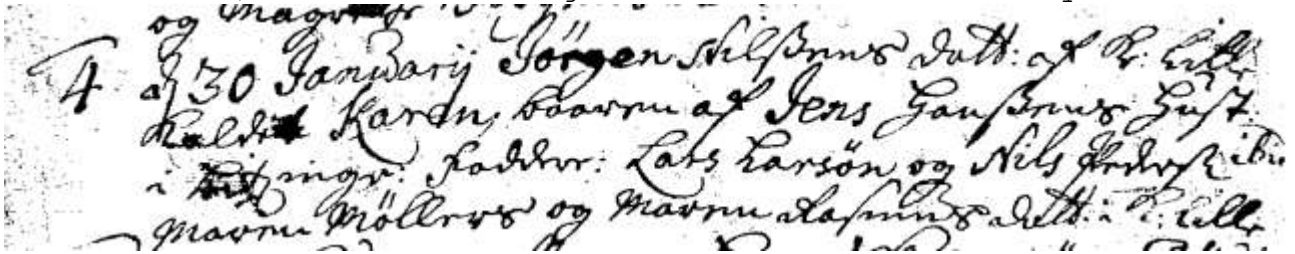 og Magrete
4 d 30 Januarij Jörgen Nilßens datt: af K: Lille
kaldet Karen, baaren af Jens Hanßens Hust:
i inge: Faddere: Lars Larsön og Nils Pederß: ibid
Maren Möllers og Maren Rasmus datt: i K: Lille